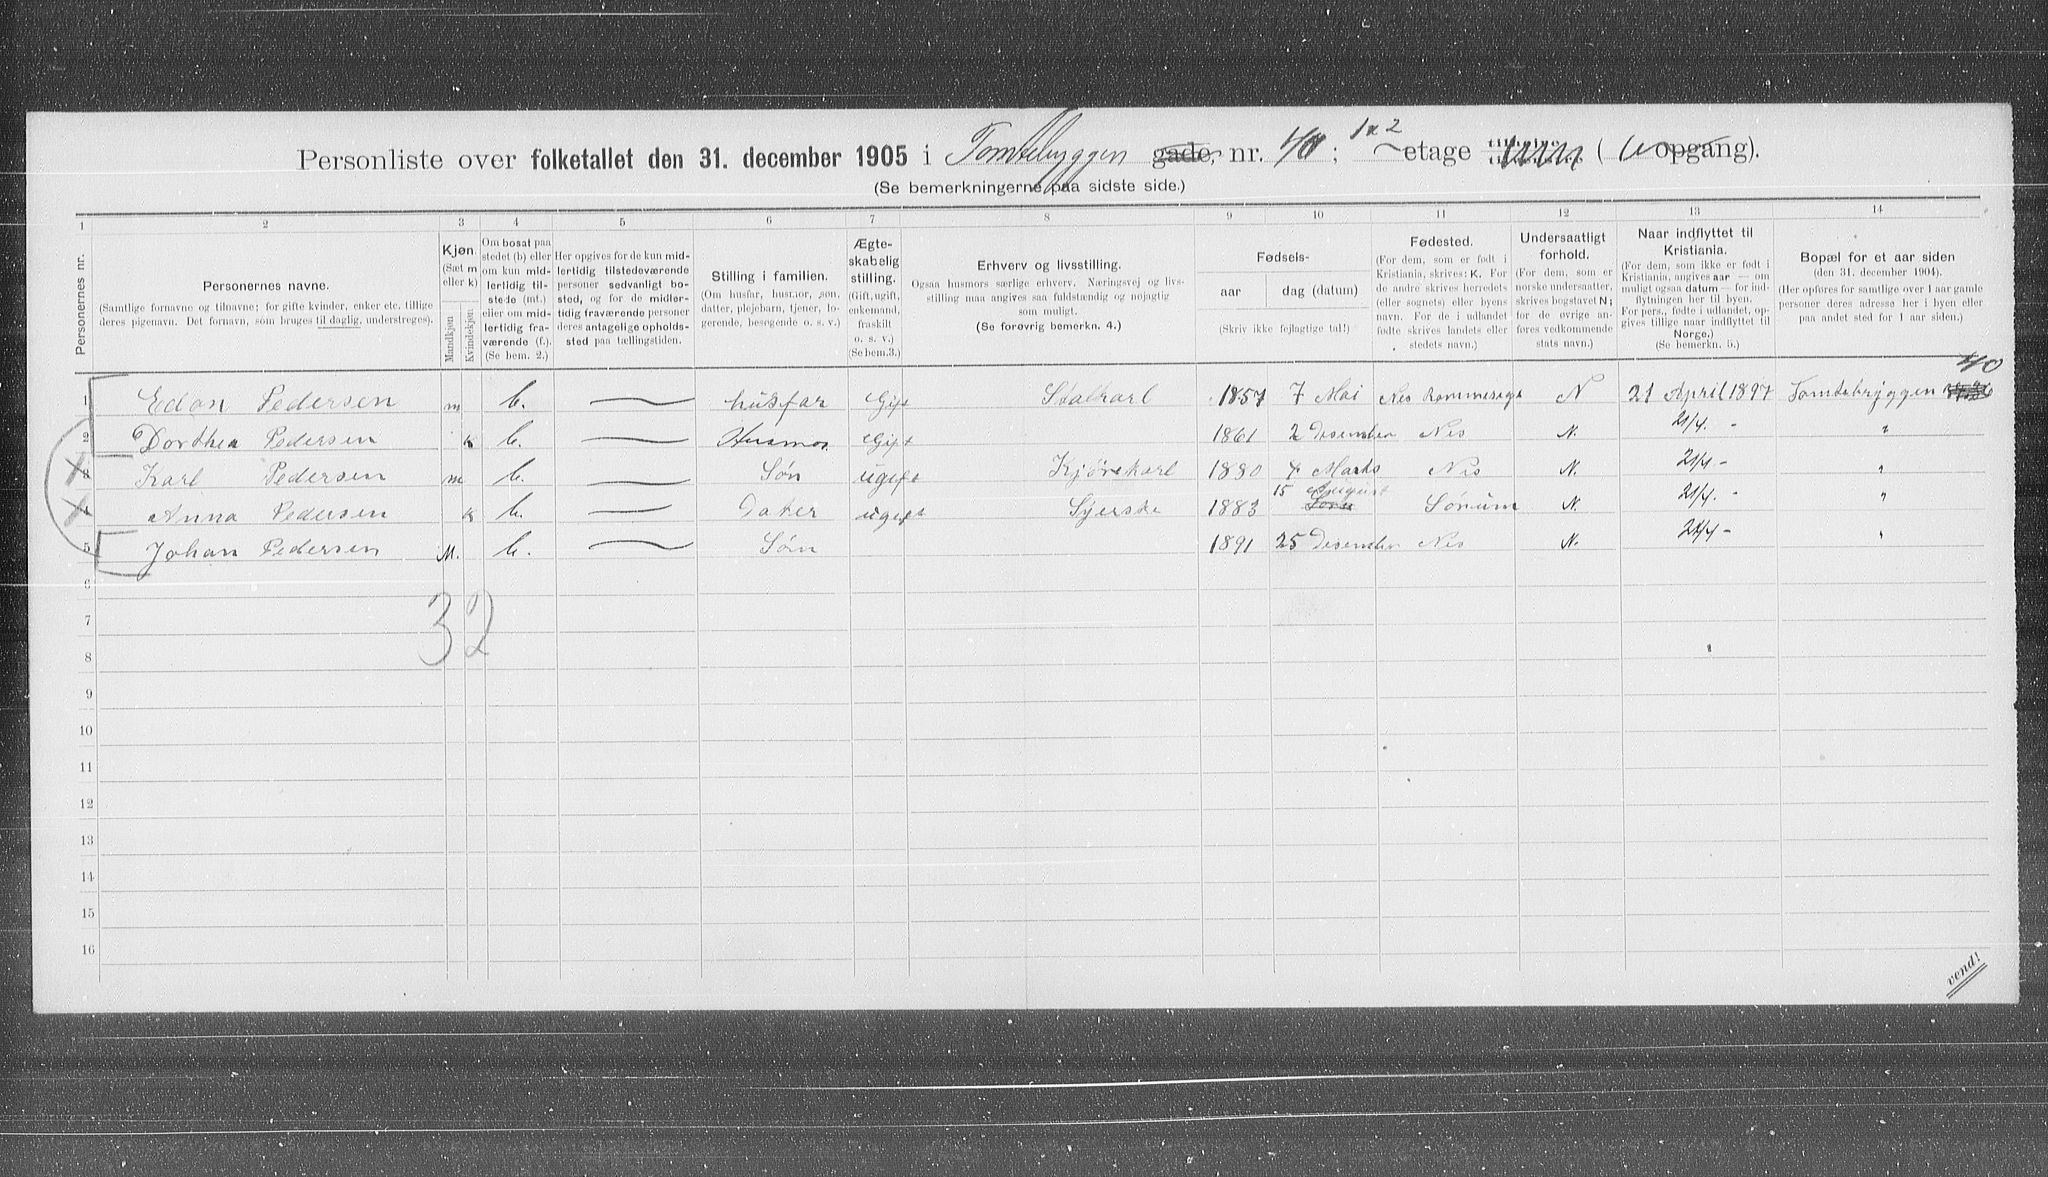 Personliste over folketallet den 31. december 1905 i Tomtebyggen gade, nr. 40; 1 & 2 etage ( opgang).
(Se bemerkningerne paa sidste side.)
1 2 3 4 5 6 7 8 9 10 11 12 13 14
Personernes nr.
Personernes navne.
(Samtlige fornavne og tilnavne; for gifte kvinder, enker etc. tillige deres pigenavn. Det fornavn, som bruges til daglig, understreges).
Kjøn.
(Sæt m eller k)
Mandkjøn
Kvindekjøn.
Om bosat paa stedet (b) eller om kun midlertidig tilstede (mt.) eller om midlertidig fraværende (f.). (Se bem. 2.)
Her opgives for de kun midlertidig tilstedeværende personer sedvanligt bosted, og for de midlertidig fraværende personer deres antagelige opholdssted paa tællingstiden.
Stilling i familien.
(Om husfar, husmor, søn, datter, plejebarn, tjener, logerende, besøgende o. s. v.)
Ægteskabelig stilling.
(Gift, ugift, enkemand, fraskilt o. s. v.)
(Se bem. 3.)
Erhverv og livsstilling.
Ogsaa husmors særlige erhverv. Næringsvej og livsstilling maa angives saa fuldstændig og nøjagtig som muligt.
(Se forøvrig bemerkn. 4.)
Fødsels-
aar dag (datum)
(Skriv ikke fejlagtige tal!)
Fødested.
(For dem, som er født i Kristiania, skrives: K. For de andre skrives herredets (eller sognets) eller byens navn. For de i udlandet fødte skrives landets eller stedets navn.)
Undersaatligt forhold.
(For dem, som er norske undersaatter, skrives bogstavet N; for de øvrige anføres vedkommende stats navn.)
Naar indflyttet til Kristiania.
(For dem, som ikke er født i Kristiania, angives aar — om muligt ogsaa datum — for indflytningen her til byen. For pers., fødte i udlandet, opgives tillige naar indflyttet til Norge.)
(Se bemerkn. 5.)
Bopæl for et aar siden
(den 31. december 1904).
(Her opføres for samtlige over 1 aar gamle personer deres adresse her i byen eller paa andet sted for 1 aar siden.)
1 Edon Pedersen m b. husfar Gift Stalkarl 1857 7 Mai Nes Rommerige N 21 April 1897 Tomtebryggen 40
2 Dorthea Pedersen k b. Husmor Gift 1861 2 Desember Nes N. 21/4. - "
3 Karl Pedersen m b. Søn ugift Kjørekarl 1880 4 Marts Nes N. 21/4 - "
4 Anna Pedersen k b. Dater ugift Syerske 1883 15 August Sørum N. 21/4. - "
5 Johan Pedersen M. b. Søn 1891 25 Desember Nes N. 21/4 - "
32
6
7
8
9
10
11
12
13
14
15
16
vend!